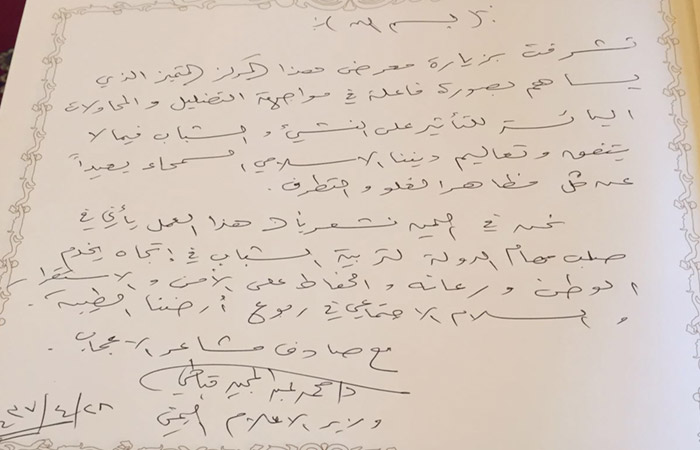 بسم الله
تشرفت بزيارة معرض هذا المركز المتميز الذي
يساهم بصورة فاعلة في مواجهة التضليل والمحاولات
اليائسة للتأثير على النشئ والشباب فيما لا
يتفق وتعاليم ديننا الاسلامي السمحاء بعيداً
عن كل مظاهر الغلو والتطرف.
نحن في اليمن نشعر بأن هذا العمل يأتي في
صلب مهام الدولة لتربية الشباب في إتجاه يخدم
الوطن ورعاته والحفاظ على الأمن والاستقرار
والسلام الاجتماعي في ربوع أرضنا الطيبة.
مع صادق مشاعر الاعجاب.
د/محمد عبد المجيد قباطي
وزير الاعلام اليمني
٤٣٧/٤/٢٨